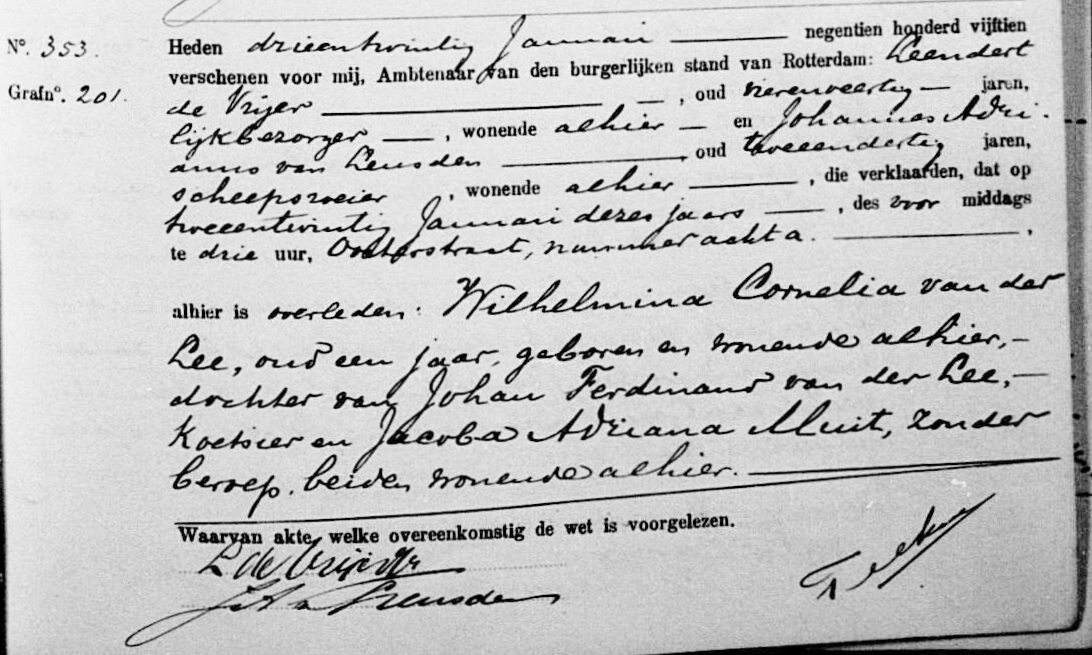 Nº. 353. Heden drieentwintig Januari negentien honderd vijftien
verschenen voor mij, Ambtenaar van den burgerlijken stand van Rotterdam: Leendert
Grafnº. 201. de Vrijer , oud vierenveertig jaren,
lijkbezorger , wonende alhier en Johannes Adri-
anus van Leusden , oud tweeendertig jaren,
scheepsroeier , wonende alhier , die verklaarden, dat op
tweeentwintig Januari dezes jaars , des voor middags
te drie uur, Oosterstraat, nummer acht a. ,
alhier is overleden: Wilhelmina Cornelia van der
Lee, oud een jaar, geboren en wonende alhier,
dochter van Johan Ferdinand van der Lee,
Koetsier en Jacoba Adriana Muit, zonder
beroep, beiden wonende alhier.
Waarvan akte, welke overeenkomstig de wet is voorgelezen.
L de Vrijer
J A v Leusden